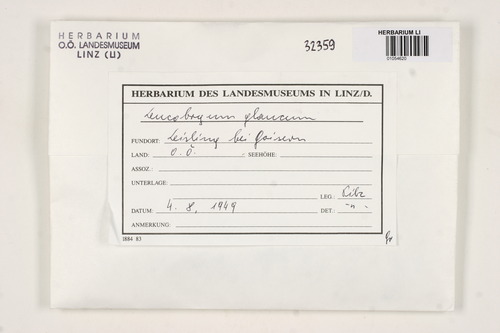 HERBARIUM
O.Ö. LANDESMUSEUM
LINZ (LI)
32359
HERBARIUM LI
01054620
HERBARIUM DES LANDESMUSEUMS IN LINZ/D.
Leucobryum glaucum
FUNDORT: Leisling bei Goisern
LAND: O.Ö. SEEHÖHE:
ASSOZ.:
UNTERLAGE:
LEG.: Ribz
DATUM: 4. 8. 1949 DET.: -"-
ANMERKUNG:
1884 83